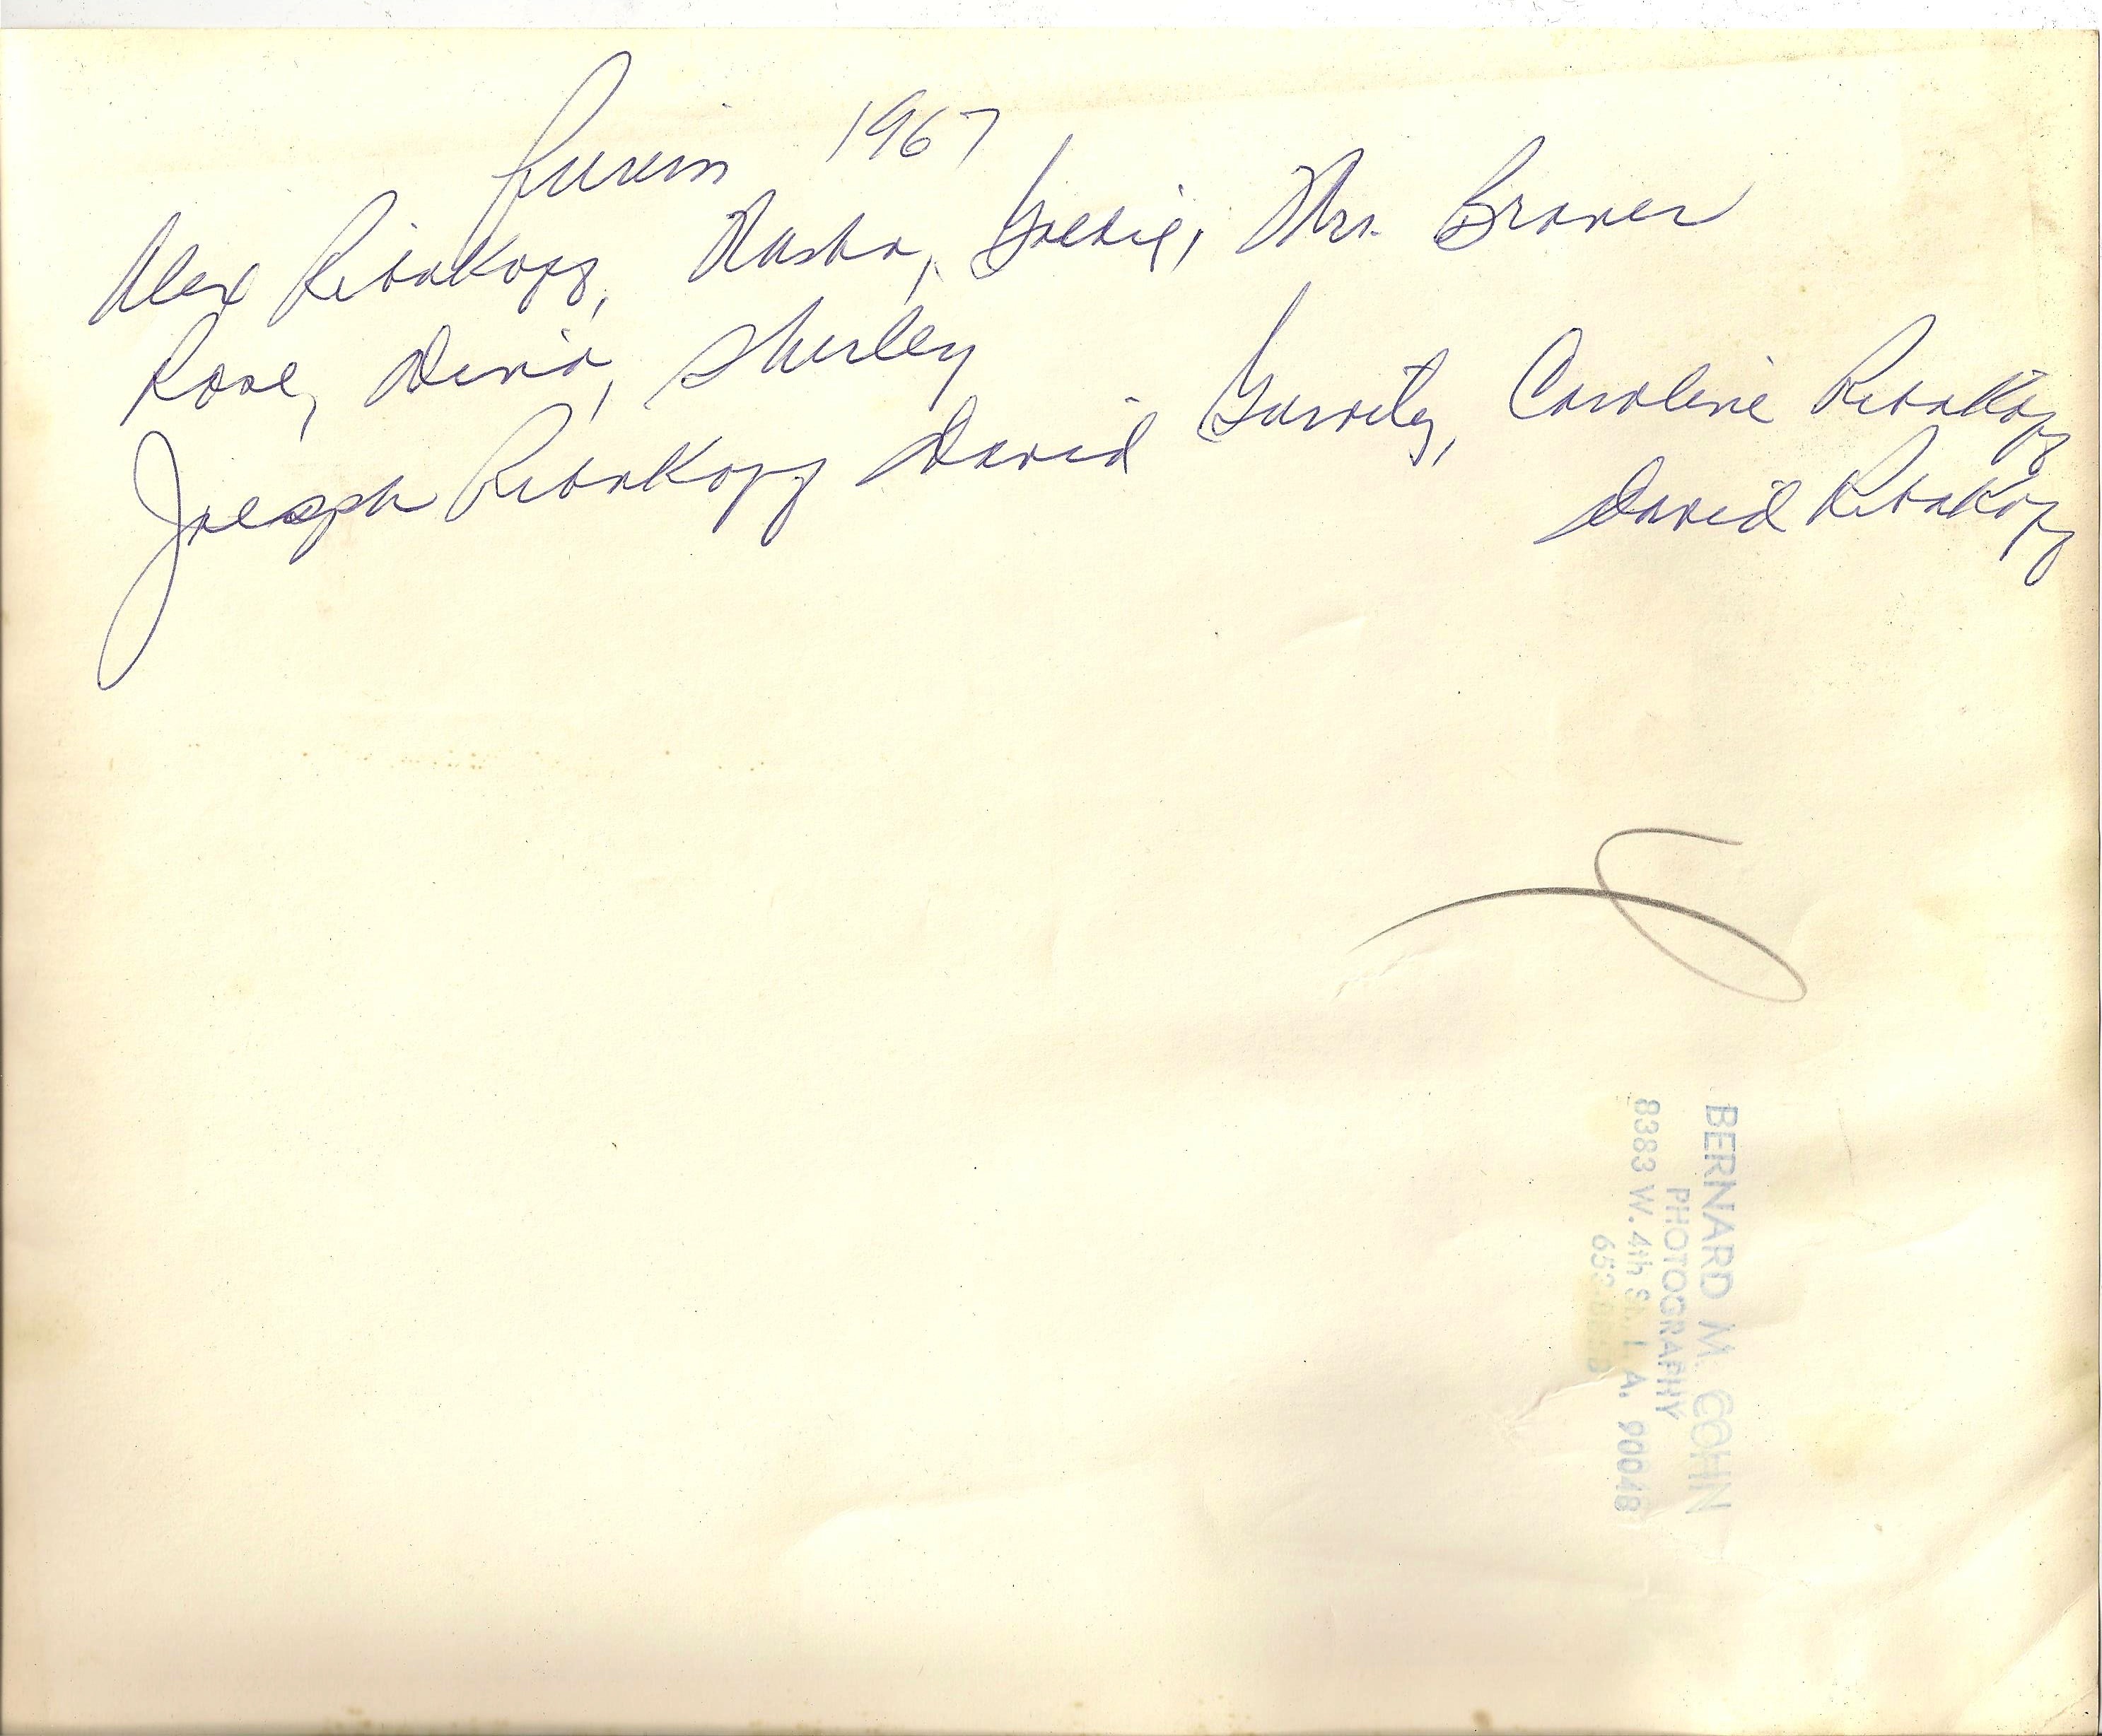 Purim 1967
Alex Ribakoff, Nasha, Goldie, Mrs. Braver
Rose, Dena, Shirley
Joseph Ribakoff David Garvitz, Caroline Ribakoff
David Ribakoff
BERNARD M. COHN
PHOTOGRAPHY
8383 W. 4th St. L. A. 90048